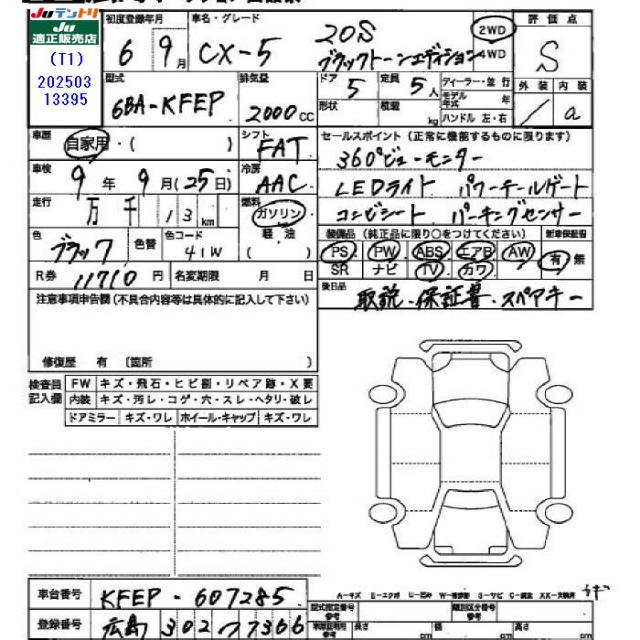 Juテントリ
Ju
適正販売店
(T1)
202503
13395
初度登録年月 車名・グレード 評価点
6 9月 CX-5 20S
ブラックトーンエディション 2WD 4WD S
型式 排気量 ドア 定員 ディーラー・並行 外装 内装
6BA-KFEP 2000cc 5 5人 モデル年式 年 a
形状 積載 kg ハンドル 左・右
車歴 自家用・( ) シフト FAT
セールスポイント(正常に機能するものに限ります)
360°ビューモニター
車検 9年9月(25日) 冷房 AAC
LEDライト パワーテールゲート
走行 万千 13km 燃料 ガソリン 軽油 ( )
コンビシート パーキングセンサー
色 ブラック 色替 色コード 41W
装備品(純正品に限り○をつけてください) 新車保証書
PS PW ABS エアB AW 有 無
SR ナビ TV カワ
R券 11710円 名変期限 月 日
後日品 取説・保証書・スペアキー
注意事項申告欄(不具合内容等は具体的に記入して下さい)
修復歴 有 (箇所 )
検査員記入欄 FW キズ・飛石・ヒビ割・リペア跡・X要
内装 キズ・汚レ・コゲ・穴・スレ・ヘタリ・破レ
ドアミラー キズ・ワレ ホイール・キャップ キズ・ワレ
車台番号 KFEP-607285
A-キズ
登録番号 広島 302
型式指定番号 参考 類別区分番号 参考
長さ cm 幅 cm 高さ cm